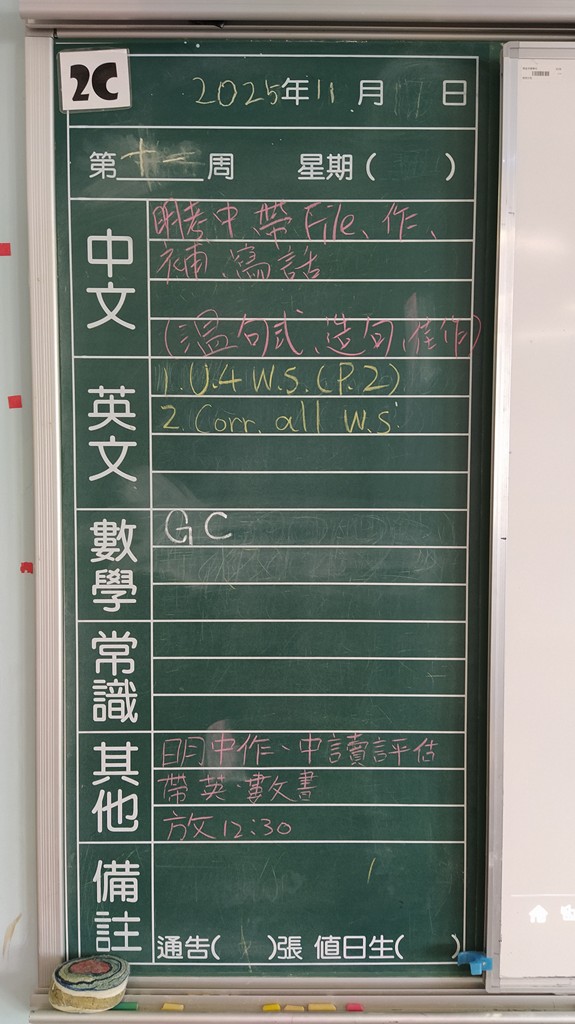 2C
2025年11月17日
第十一周 星期( )
中文
明考中帶File、作、
補、寫話
(溫句式、造句、佳作)
英文
1.U.4 W.S.(P.2)
2.Corr. all W.S.
數學
GC
常識
其他
明中作、中讀評估
帶英、數文書
放12:30
備註
通告( )張 值日生( )